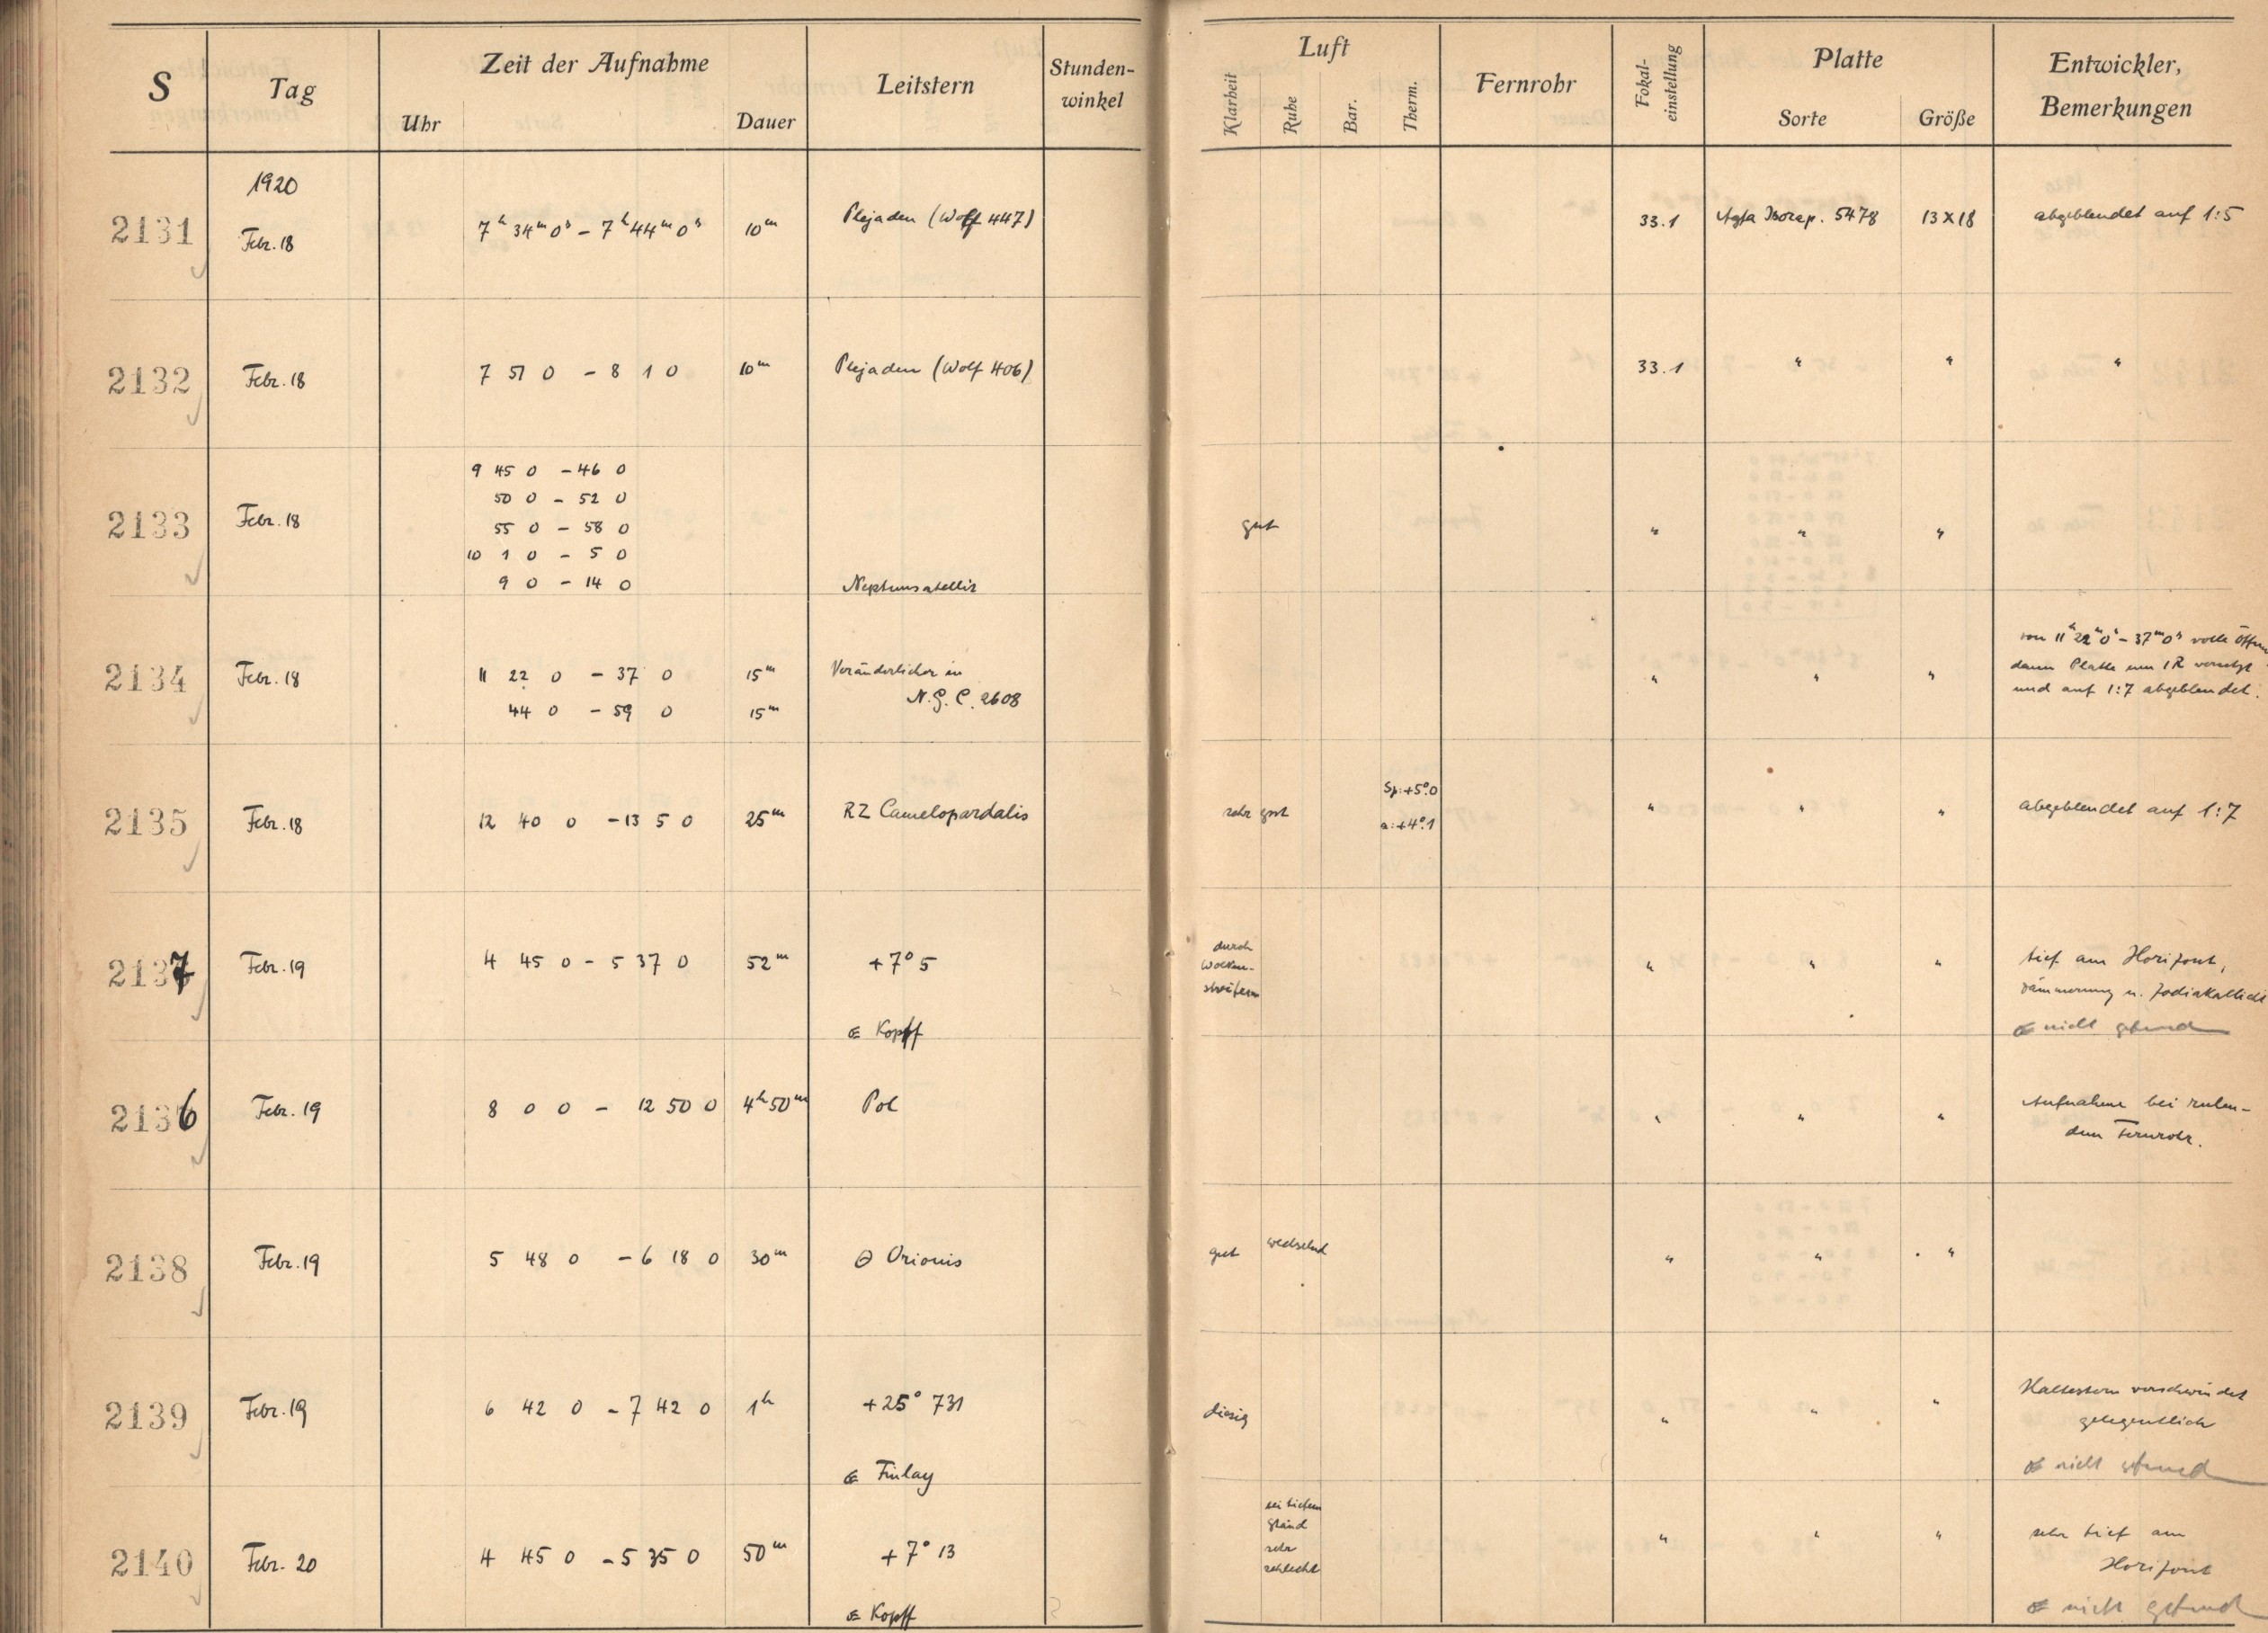 S Tag Zeit der Aufnahme Uhr Dauer Leitstern Stunden-winkel Luft Klarheit Ruhe Bar. Therm. Fernrohr Fokal-einstellung Platte Sorte Größe Entwickler, Bemerkungen
1920
2131 Febr. 18 7ʰ 34ᵐ 0ˢ – 7ʰ 44ᵐ 0ˢ 10ᵐ Plejaden (Wolf 447) 33.1 Agfa Isorap. 5478 13 X 18 abgeblendet auf 1:5
2132 Febr. 18 7 51 0 – 8 1 0 10ᵐ Plejaden (Wolf 406) 33.1 " " "
2133 Febr. 18 9 45 0 – 46 0
50 0 – 52 0
55 0 – 58 0 gut " " "
10 1 0 – 5 0
9 0 – 14 0 Neptunsatellit
2134 Febr. 18 11 22 0 – 37 0 15ᵐ Veränderlicher in " " " von 11ʰ 22ᵐ 0ˢ – 37ᵐ 0ˢ volle
44 0 – 59 0 15ᵐ N.G.C. 2608 dann Platte um 1R versetzt
und auf 1:7 abgeblendet.
2135 Febr. 18 12 40 0 – 13 5 0 25ᵐ RZ Camelopardalis sehr gut Sp: +5°.0 " " " abgeblendet auf 1:7
a: +4°.1
2137 Febr. 19 4 45 0 – 5 37 0 52ᵐ +7° 5 durch " " " tief am Horizont,
Wolken- Dämmerung u. Zodiakallicht
streifen
☄ Kopff ☄ nicht gefund
2136 Febr. 19 8 0 0 – 12 50 0 4ʰ 50ᵐ Pol " " " Aufnahme bei ruhen-
dem Fernrohr.
2138 Febr. 19 5 48 0 – 6 18 0 30ᵐ Θ Orionis gut wechselnd " " "
2139 Febr. 19 6 42 0 – 7 42 0 1ʰ +25° 731 diesig " " " Haltestern verschwindet
gelegentlich
☄ Finlay ☄ nicht gefund
2140 Febr. 20 4 45 0 – 5 35 0 50ᵐ +7° 13 bei tiefem " " " sehr tief am
Stand Horizont
sehr
schlecht
☄ Kopff ☄ nicht gefund